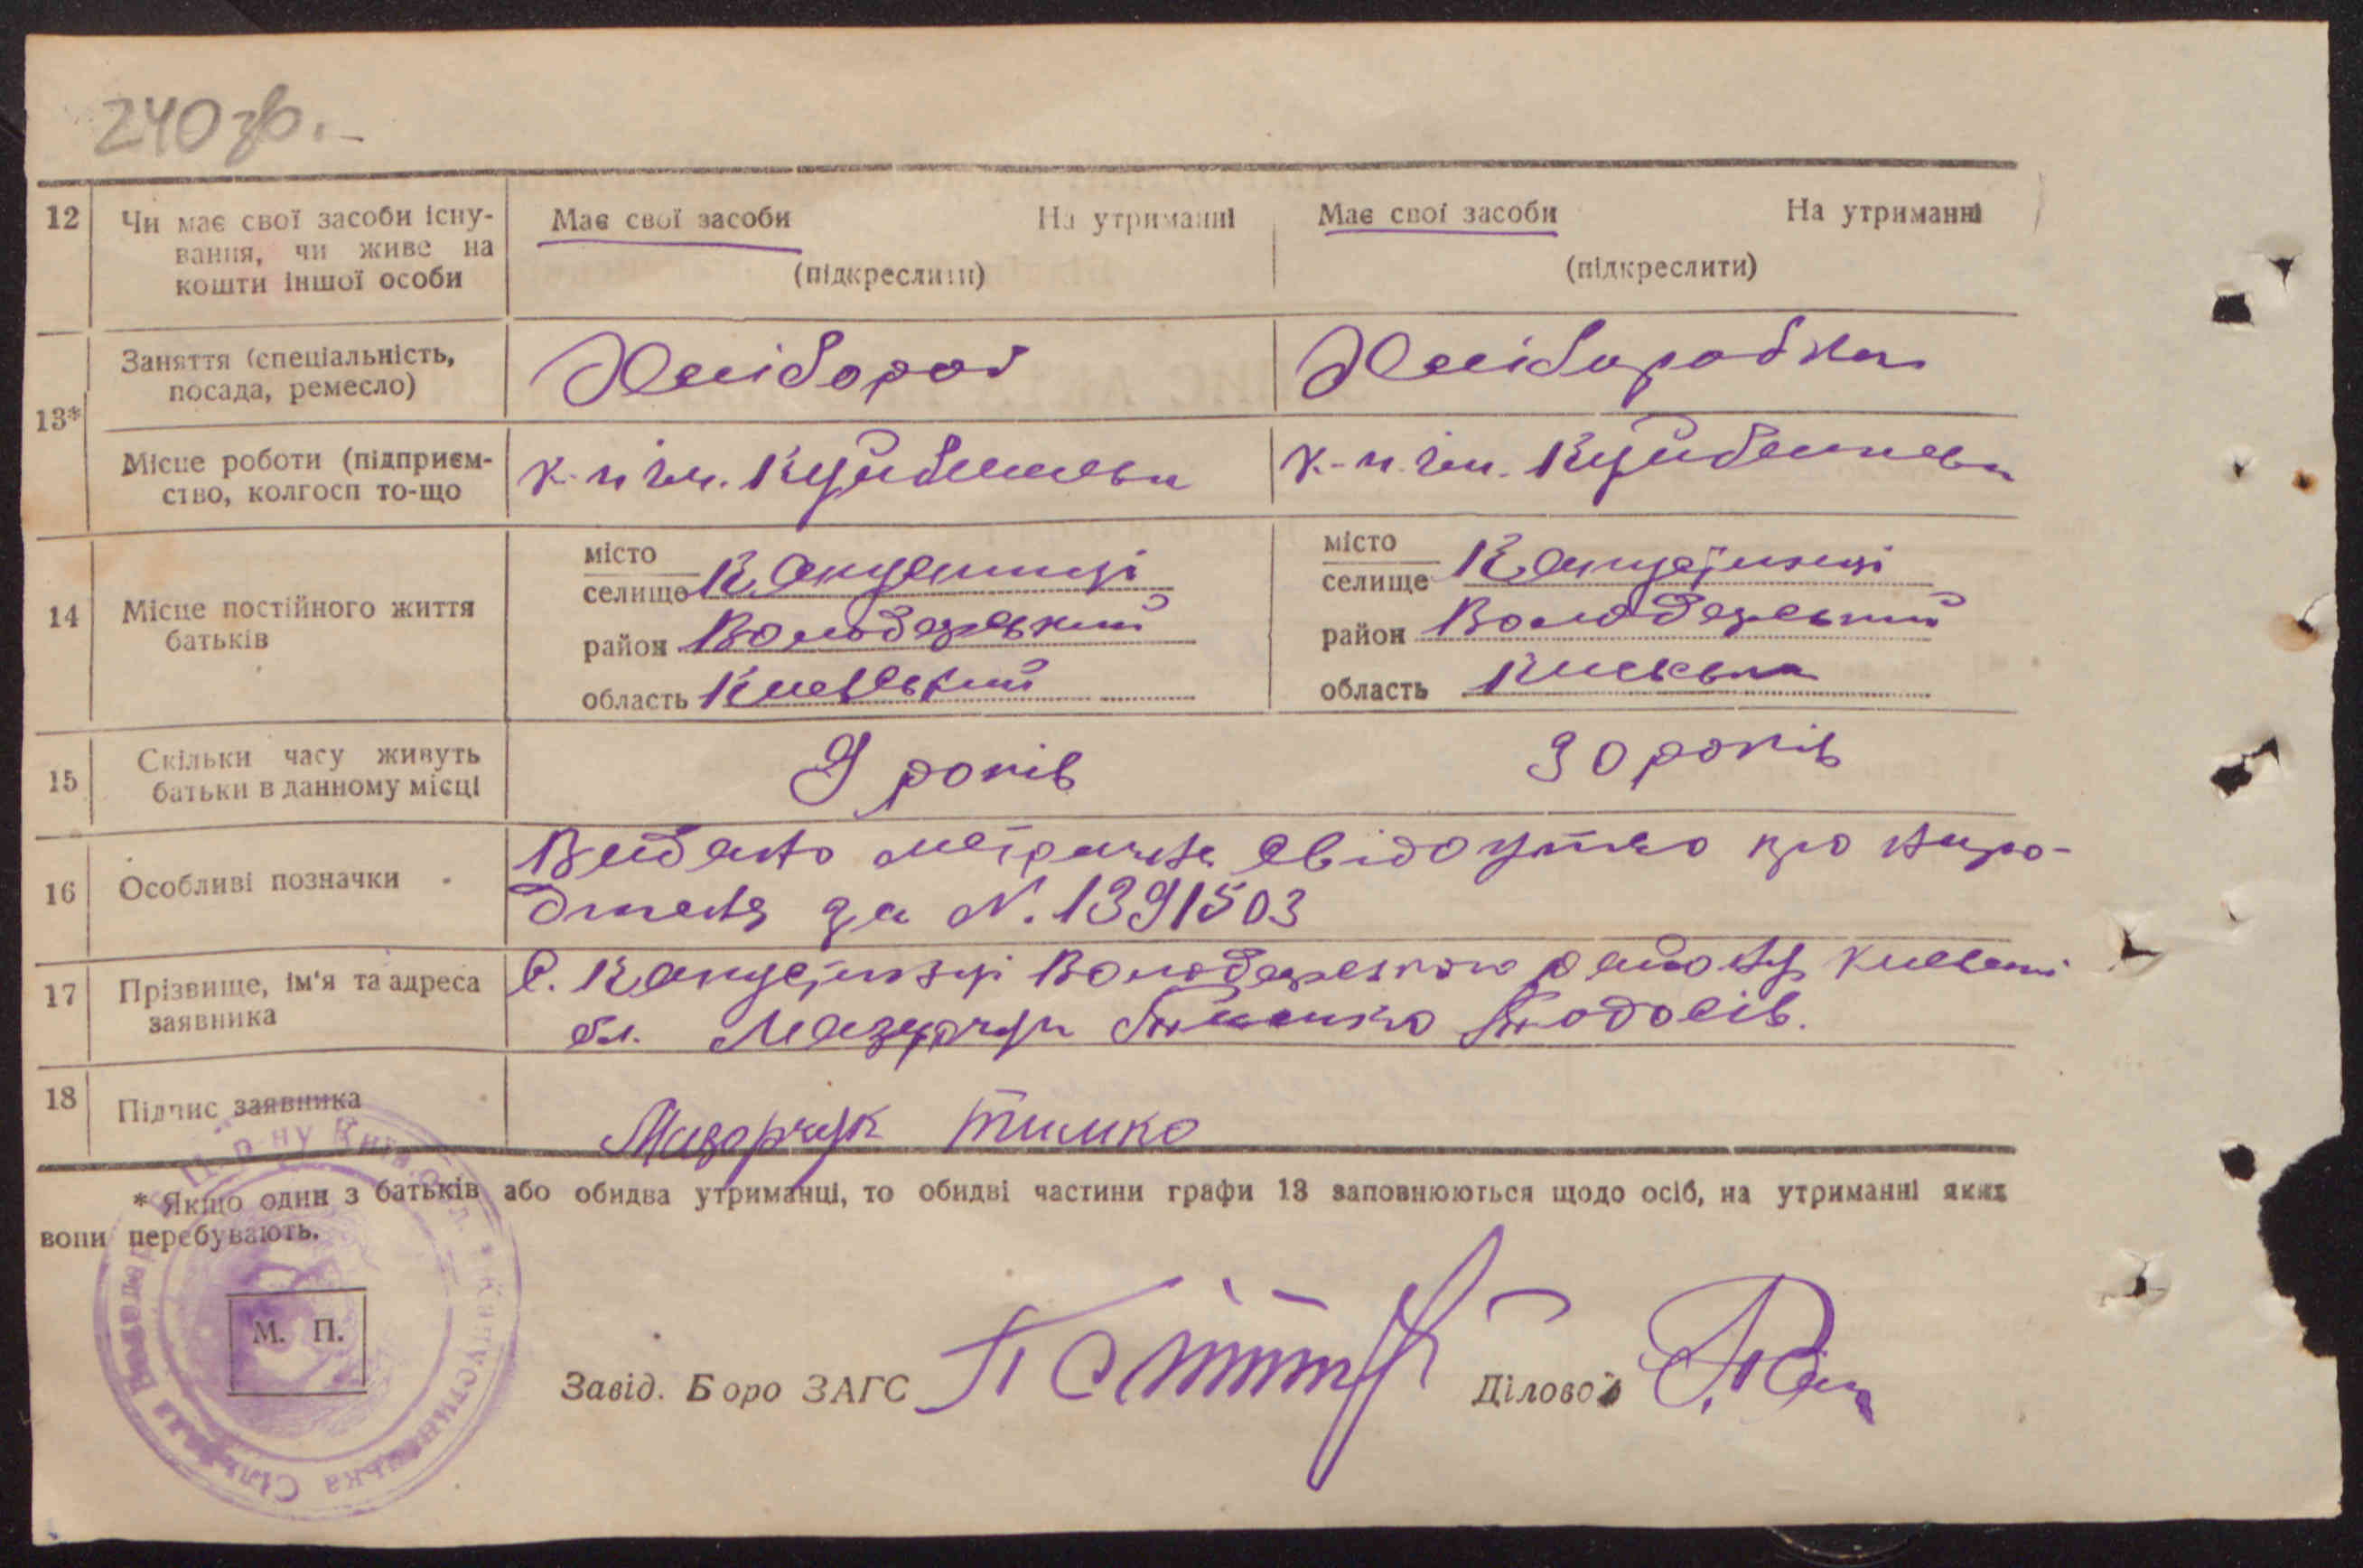 240 зв.
12 Чи має свої засоби існу- Має свої засоби На утриманні Має свої засоби На утриманні
вання, чи живе на
кошти іншої особи (підкреслити) (підкреслити)
13*
Заняття (спеціальність, Хлібороб Хліборобка
посада, ремесло)
Місце роботи (підприєм- к-п ім. Куйбешева к-п. ім. Куйбешева
ство, колгосп то-що
14 Місце постійного життя
батьків
місто
селище Капустинці
район Володарський
область Киевський
місто
селище Капустинці
район Володарський
область Киевська
15 Скільки часу живуть 9 років 30 років
батьки в данному місці
16 Особливі позначки Видано метричне свідоцтво про наро-
дження за N. 1391503
17 Прізвище, ім'я та адреса С. Капустинці Володарського району Киевської
заявника обл. Мазорчук Тимко Тодосів.
18 Підпис заявника Мазорчук Тимко
* Якщо один з батьків або обидва утриманці, то обидві частини графи 13 заповнюються щодо осіб, на утриманні яких
вони перебувають.
М. П.
Капустинська Сільська Рада
Завід. Бюро ЗАГС Діловод